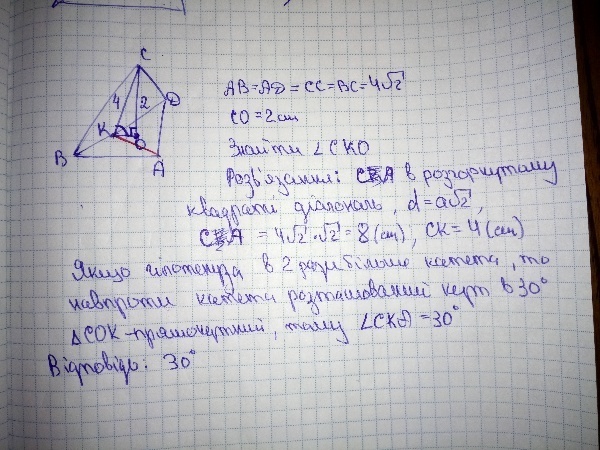 C
4
2
D
K
O
B
A
AB=AD=CC=BC=4√2
CO=2см
Знайти ∠CKO
Розв'язання: CA в розгорнутому
квадраті діагональ, d=a√2,
CA = 4√2·√2=8(см); CK=4(см)
Якщо гіпотенуза в 2 рази більше катета, то
навпроти катета розташований кут в 30°
△COK-прямокутний, тому ∠CKO=30°
Відповідь: 30°